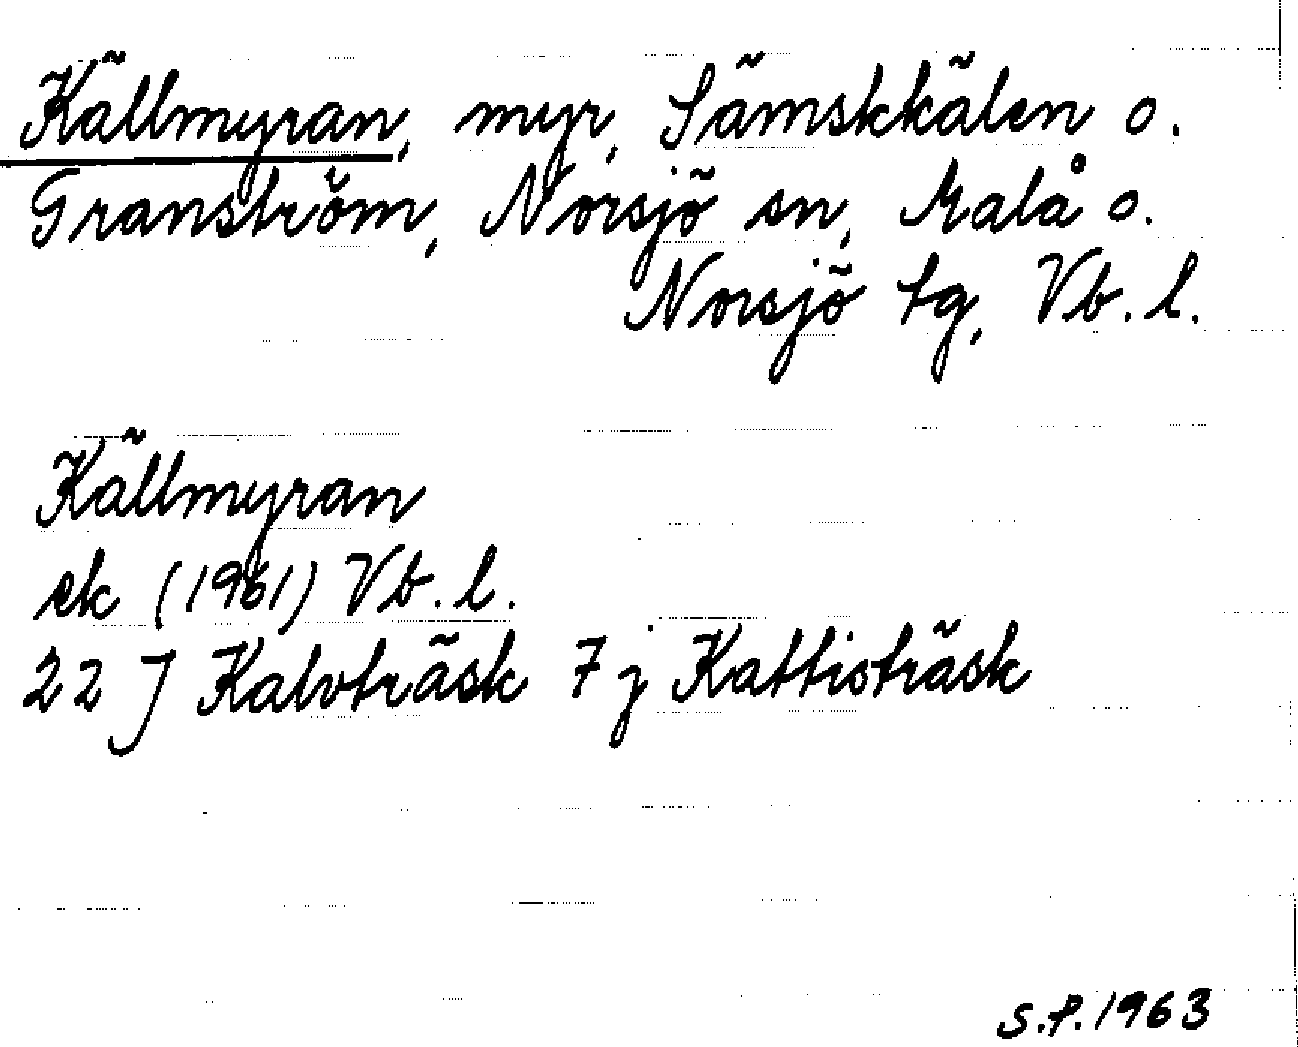 Källmyran, myr, Sämskkälen o.
Granström, Norsjö sn, Malå o.
Norsjö tg, Vb. l.
Källmyran
ek (1961) Vb. l.
22 J Kalvträsk 7 j Kattisträsk
S.P. 1963